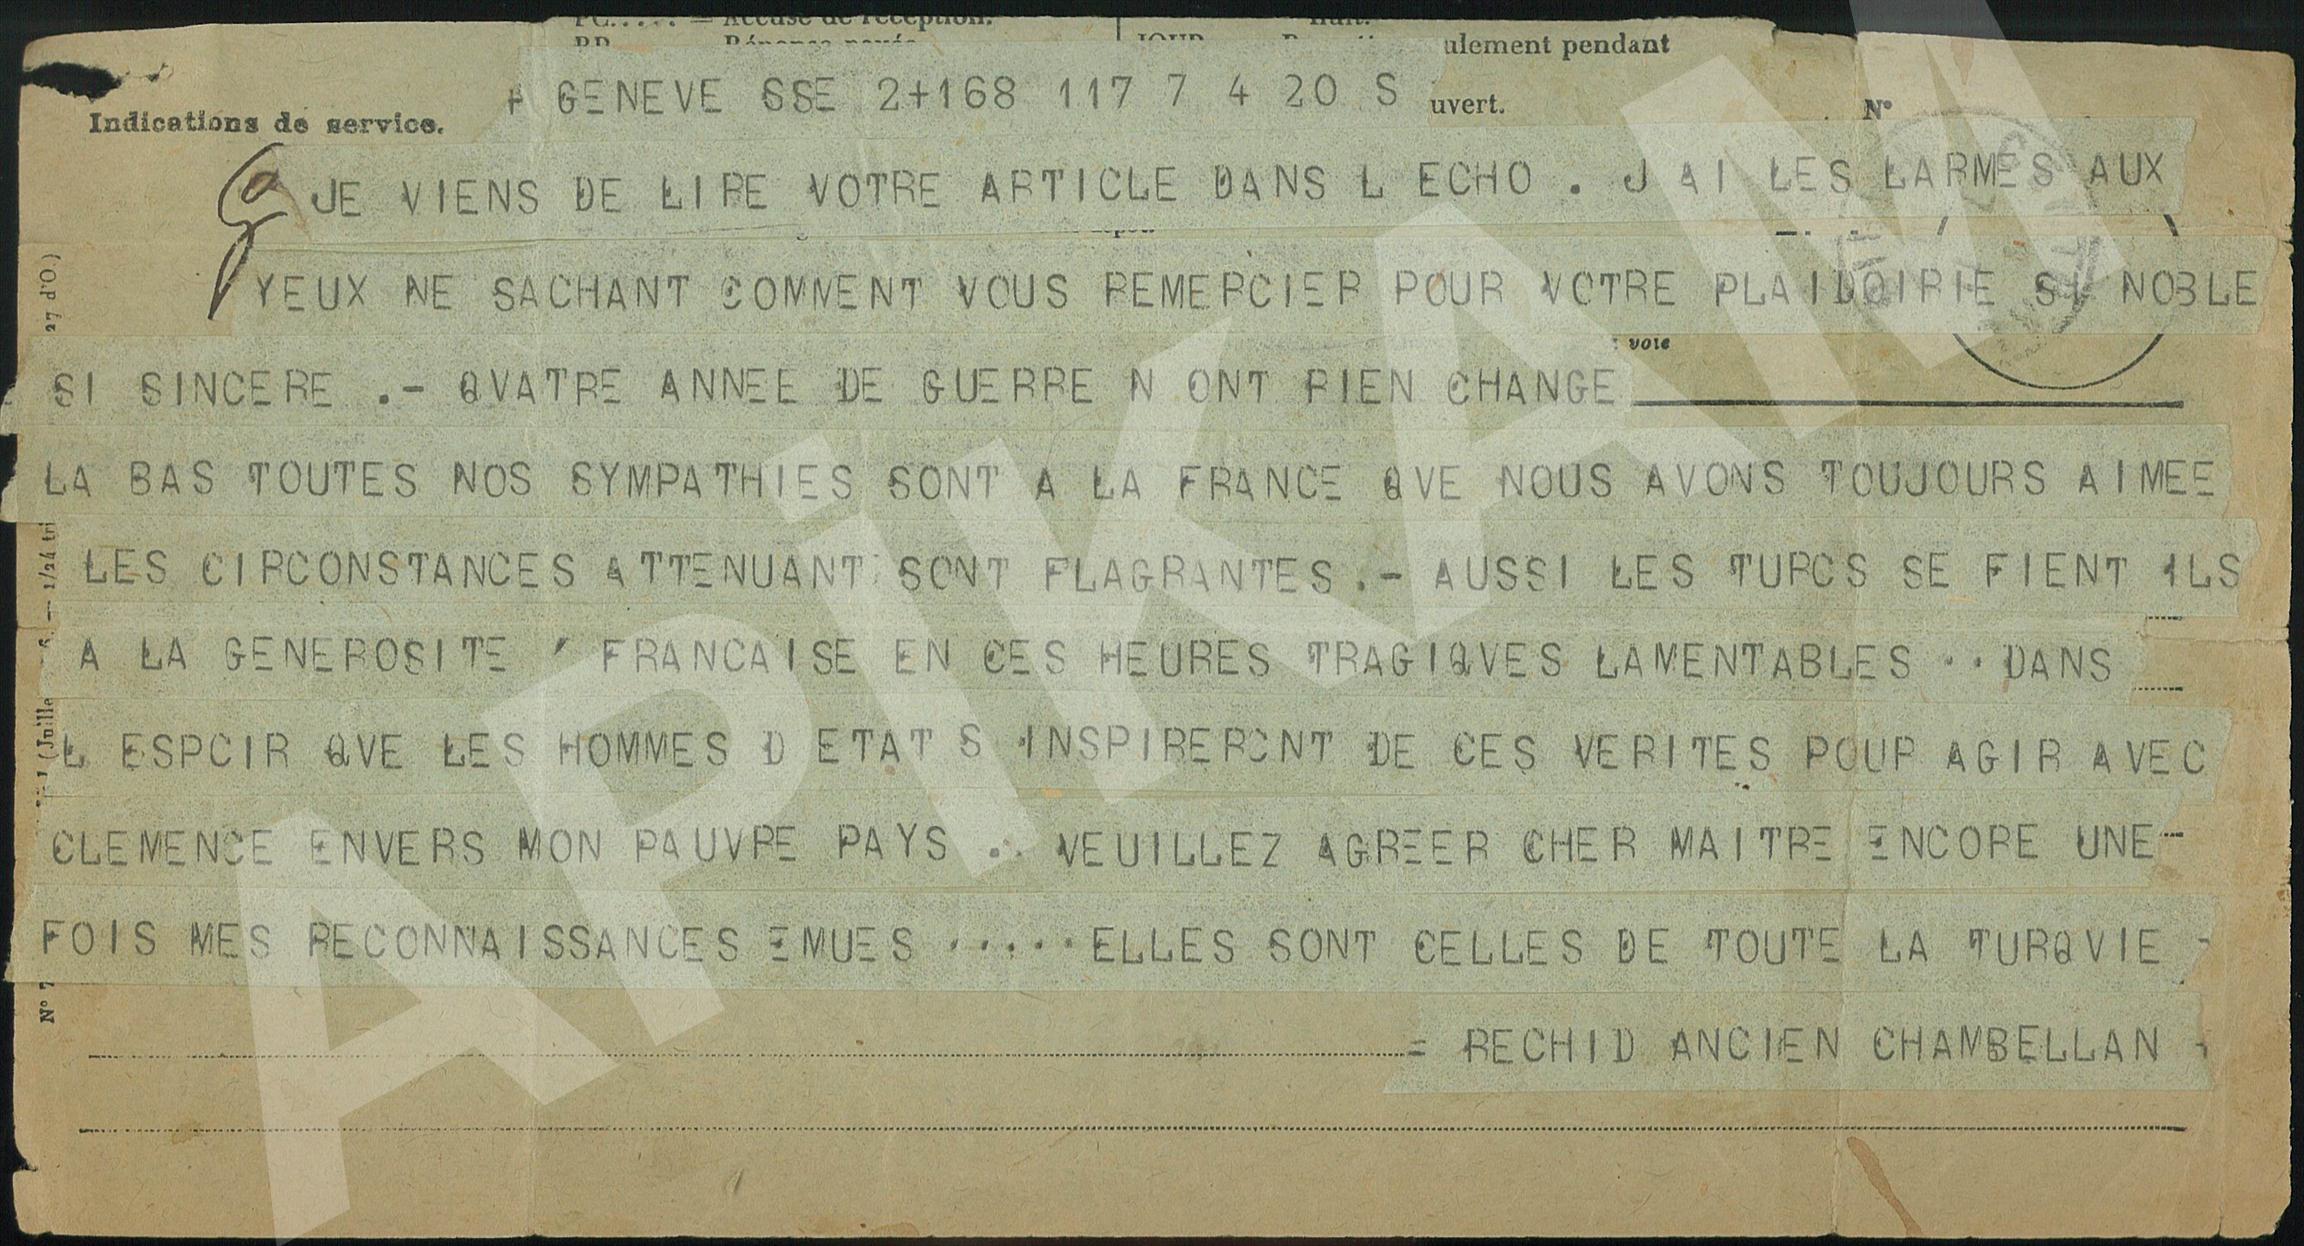 PC..... = Accusé de réception.
ulement pendant
GENEVE SSE 2+168 117 7 4 20 S
uvert.
N°
Indications de service.
JE VIENS DE LIRE VOTRE ARTICLE DANS L ECHO . J AI LES LARMES AUX
YEUX NE SACHANT COMMENT VOUS REMERCIER POUR VOTRE PLAIDOIRIE SI NOBLE
voie
SI SINCERE .- QVATRE ANNEE DE GUERRE N ONT RIEN CHANGE
LA BAS TOUTES NOS SYMPATHIES SONT A LA FRANCE QVE NOUS AVONS TOUJOURS AIMEE
LES CIRCONSTANCES ATTENUANT SONT FLAGRANTES .- AUSSI LES TURCS SE FIENT ILS
A LA GENEROSITE ' FRANCAISE EN CES HEURES TRAGIQVES LAMENTABLES .. DANS
L ESPOIR QVE LES HOMMES D ETAT S INSPIRERONT DE CES VERITES POUR AGIR AVEC
CLEMENCE ENVERS MON PAUVRE PAYS .. VEUILLEZ AGREER CHER MAITRE ENCORE UNE
FOIS MES RECONNAISSANCES EMUES ..... ELLES SONT CELLES DE TOUTE LA TURQVIE -
= RECHID ANCIEN CHAMBELLAN -
27 d'O.)
APİKAM